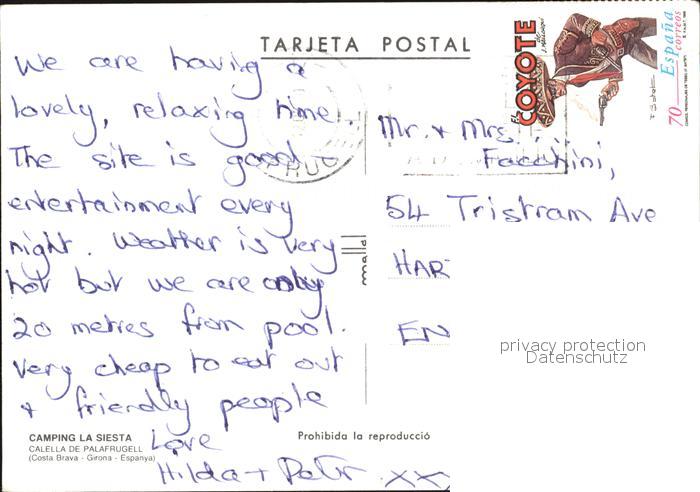 TARJETA POSTAL
We are having a
lovely, relaxing time.
The site is good
entertainment every
night. Weather is very
hot but we are only
20 metres from pool.
Very cheap to eat out
+ friendly people
Love
Hilda + Peter xxx
CAMPING LA SIESTA
CALELLA DE PALAFRUGELL
(Costa Brava - Girona - Espanya)
Prohibida la reproducció
EL COYOTE
España
correos
70
Mr. + Mrs.
Facchini,
54 Tristram Ave
HAR
EN
privacy protection
Datenschutz